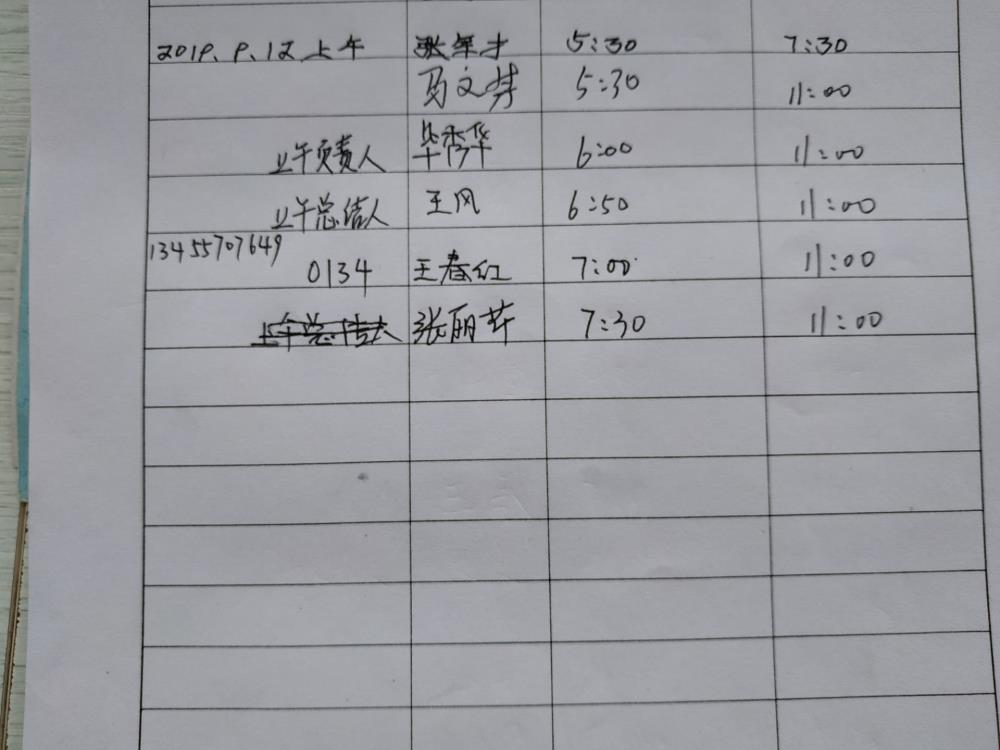 2019.9.12上午 张年才 5:30 7:30
马文芹 5:30 11:00
上午负责人 毕秀华 6:00 11:00
上午总结人 王风 6:50 11:00
13455707649
0134 王春红 7:00 11:00
张丽芹 7:30 11:00